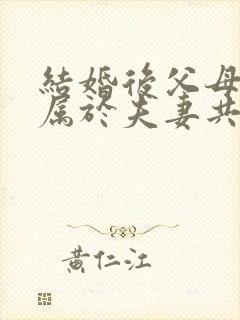 結婚後父母
属於夫妻共
黄仁江